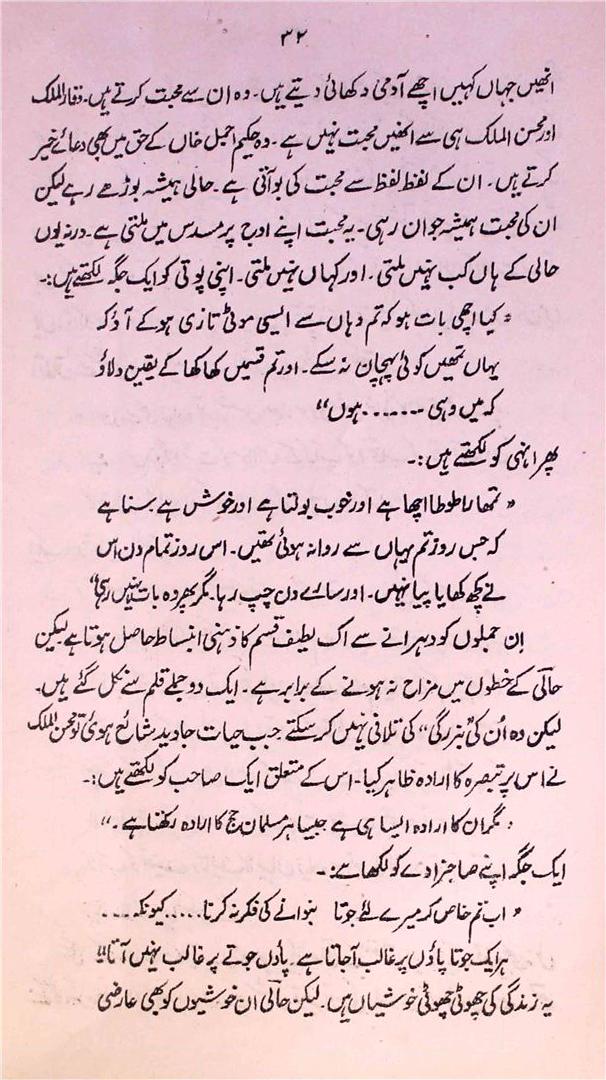 ۳۲
انھیں جہاں کہیں اچھے آدمی دکھائی دیتے ہیں۔ وہ ان سے محبت کرتے ہیں۔ وقار الملک
اور محسن الملک ہی سے انھیں محبت نہیں ہے۔ وہ حکیم اجمل خاں کے حق میں بھی دعائے خیر
کرتے ہیں۔ ان کے لفظ لفظ سے محبت کی بو آتی ہے۔ حالی ہمیشہ بوڑھے رہے لیکن
ان کی محبت ہمیشہ جوان رہی۔ یہ محبت اپنے اوج پر مسدس میں ملتی ہے۔ ورنہ یوں
حالی کے ہاں کب نہیں ملتی۔ اور کہاں نہیں ملتی۔ اپنی پوتی کو ایک جگہ لکھتے ہیں:۔
"کیا اچھی بات ہو کہ تم وہاں سے ایسی موٹی تازی ہو کے آؤ کہ
یہاں تمھیں کوئی پہچان نہ سکے۔ اور تم قسمیں کھا کھا کے یقین دلاؤ
کہ میں وہی ۔۔۔۔۔۔ ہوں"
پھر انہی کو لکھتے ہیں:۔
"تمھارا طوطا اچھا ہے اور خوب بولتا ہے اور خوش ہے سنا ہے
کہ جس روز تم یہاں سے روانہ ہوئی تھیں۔ اس روز تمام دن اس
نے کچھ کھایا پیا نہیں۔ اور سارے دن چپ رہا۔ مگر پھر وہ بات نہیں رہی"
اِن جملوں کو دہرانے سے اک لطیف قسم کا ذہنی انبساط حاصل ہوتا ہے لیکن
حالی کے خطوں میں مزاح نہ ہونے کے برابر ہے۔ ایک دو جملے قلم سے نکل گئے ہیں۔
لیکن وہ اُن کی "بزرگی" کی تلافی نہیں کر سکتے جب حیات جاوید شائع ہوئی تو محسن الملک
نے اس پر تبصرہ کا ارادہ ظاہر کیا۔ اس کے متعلق ایک صاحب کو لکھتے ہیں:۔
"مگر ان کا ارادہ ایسا ہی ہے جیسا ہر مسلمان حج کا ارادہ رکھتا ہے۔"
ایک جگہ اپنے صاحبزادے کو لکھا ہے:۔
"اب تم خاص کر میرے لئے جوتا بنوانے کی فکر نہ کرنا..... کیونکہ ۔۔۔۔
ہر ایک جوتا پاؤں پر غالب آجاتا ہے۔ پاؤں جوتے پر غالب نہیں آتا"
یہ زندگی کی چھوٹی چھوٹی خوشیاں ہیں۔ لیکن حالی ان خوشیوں کو بھی عارضی